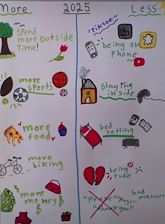 More 2025 Less
Spend
more outside
time!
"Tiktok"
being on
phone
more
sports
Staying
inside
more
food
bed
rotting
more
biking
being
rude
more
money
bad
manners